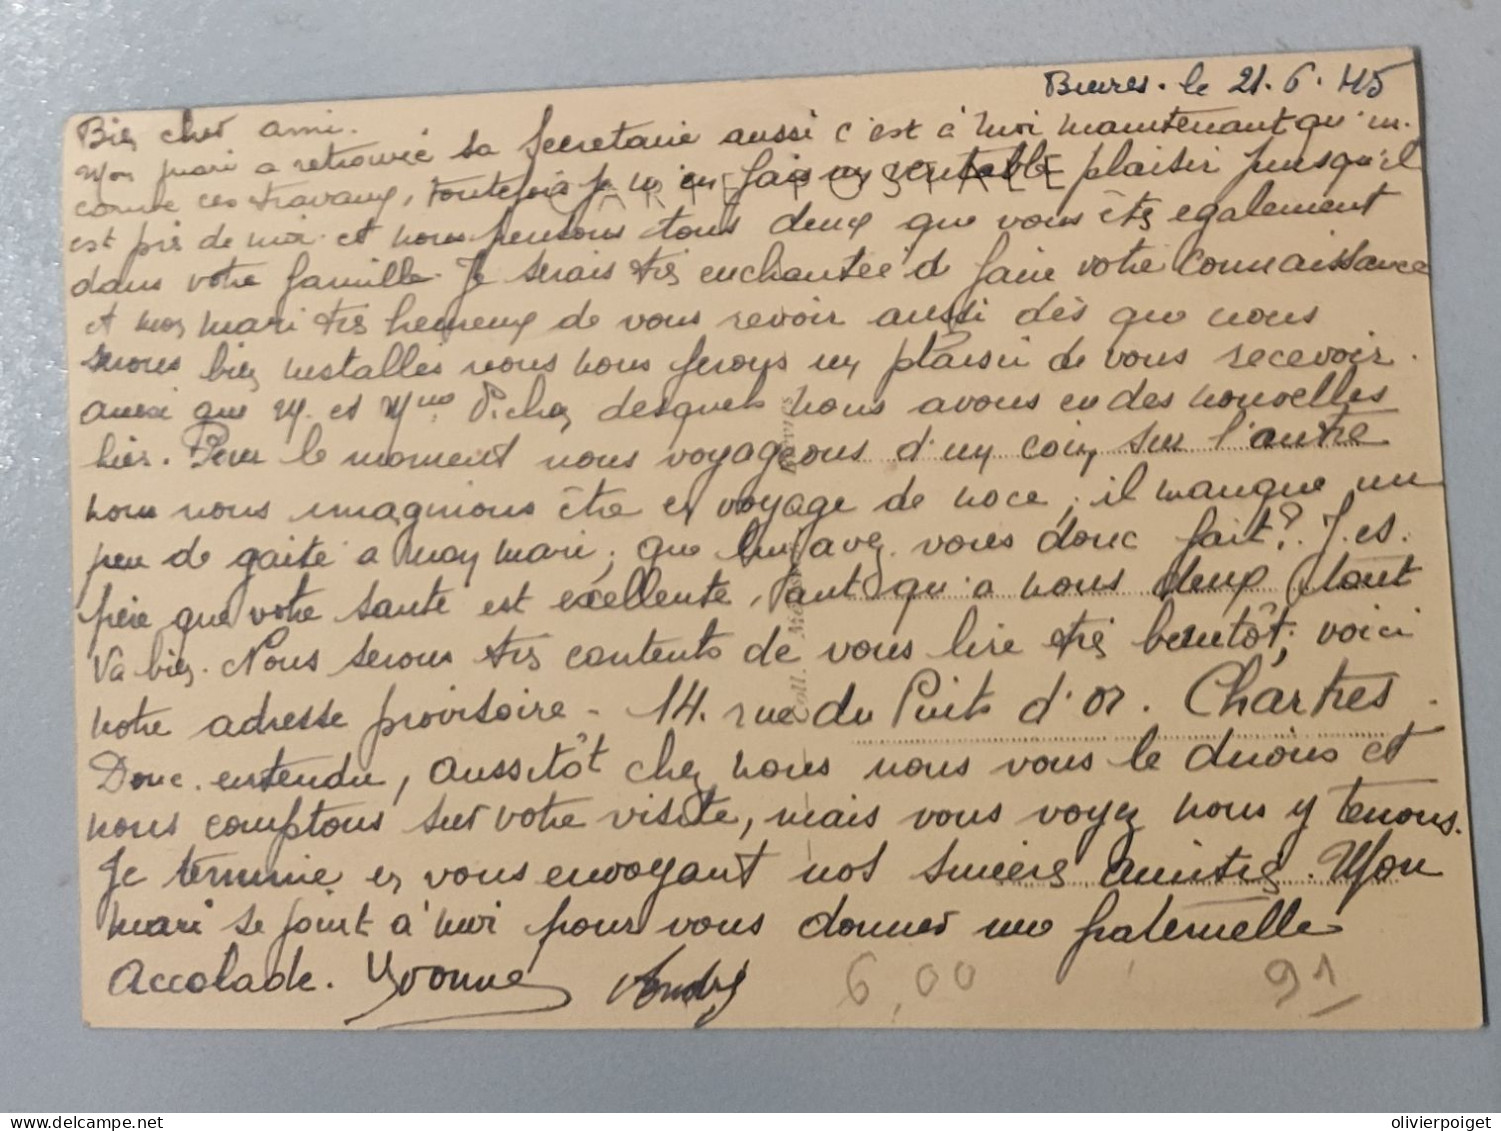 Bures. le 21.6.45
Bien cher ami.
Mon mari a retrouvé sa secretaire aussi c'est à moi maintenant qu'in-
combe ces travaux, toutefois je m'en fais un veritable plaisir puisqu'il
CARTE POSTALE
est près de moi et nous pensons tous deux que vous êtes egalement
dans votre famille. Je serais très enchantée d faire votre connaissance
et mon mari très heureux de vous revoir aussi dès que nous
serons bien installés nous nous ferons un plaisir de vous recevoir.
ainsi que M. et Mme desquels nous avons eu des nouvelles
hier. Pour le moment nous voyageons d'un coin sur l'autre
nous nous imaginions être en voyage de noce, il manque un
peu de gaité a mon mari, que lui avez vous donc fait? J'es-
père que votre santé est excellente, quant qu'a nous deux tout
va bien. Nous serons très contents de vous lire très bientôt, voici
notre adresse provisoire - 14. rue du Puits d'or. Chartres.
Donc. entendu, aussitôt chez nous nous vous le dirons et
nous comptons sur votre visite, mais vous voyez nous y tenons.
Je termine en vous envoyant nos sincères amitiés. Mon
mari se joint à moi pour vous donner une fraternelle
accolade. Yvonne André
6,00 91
olivierpoiget